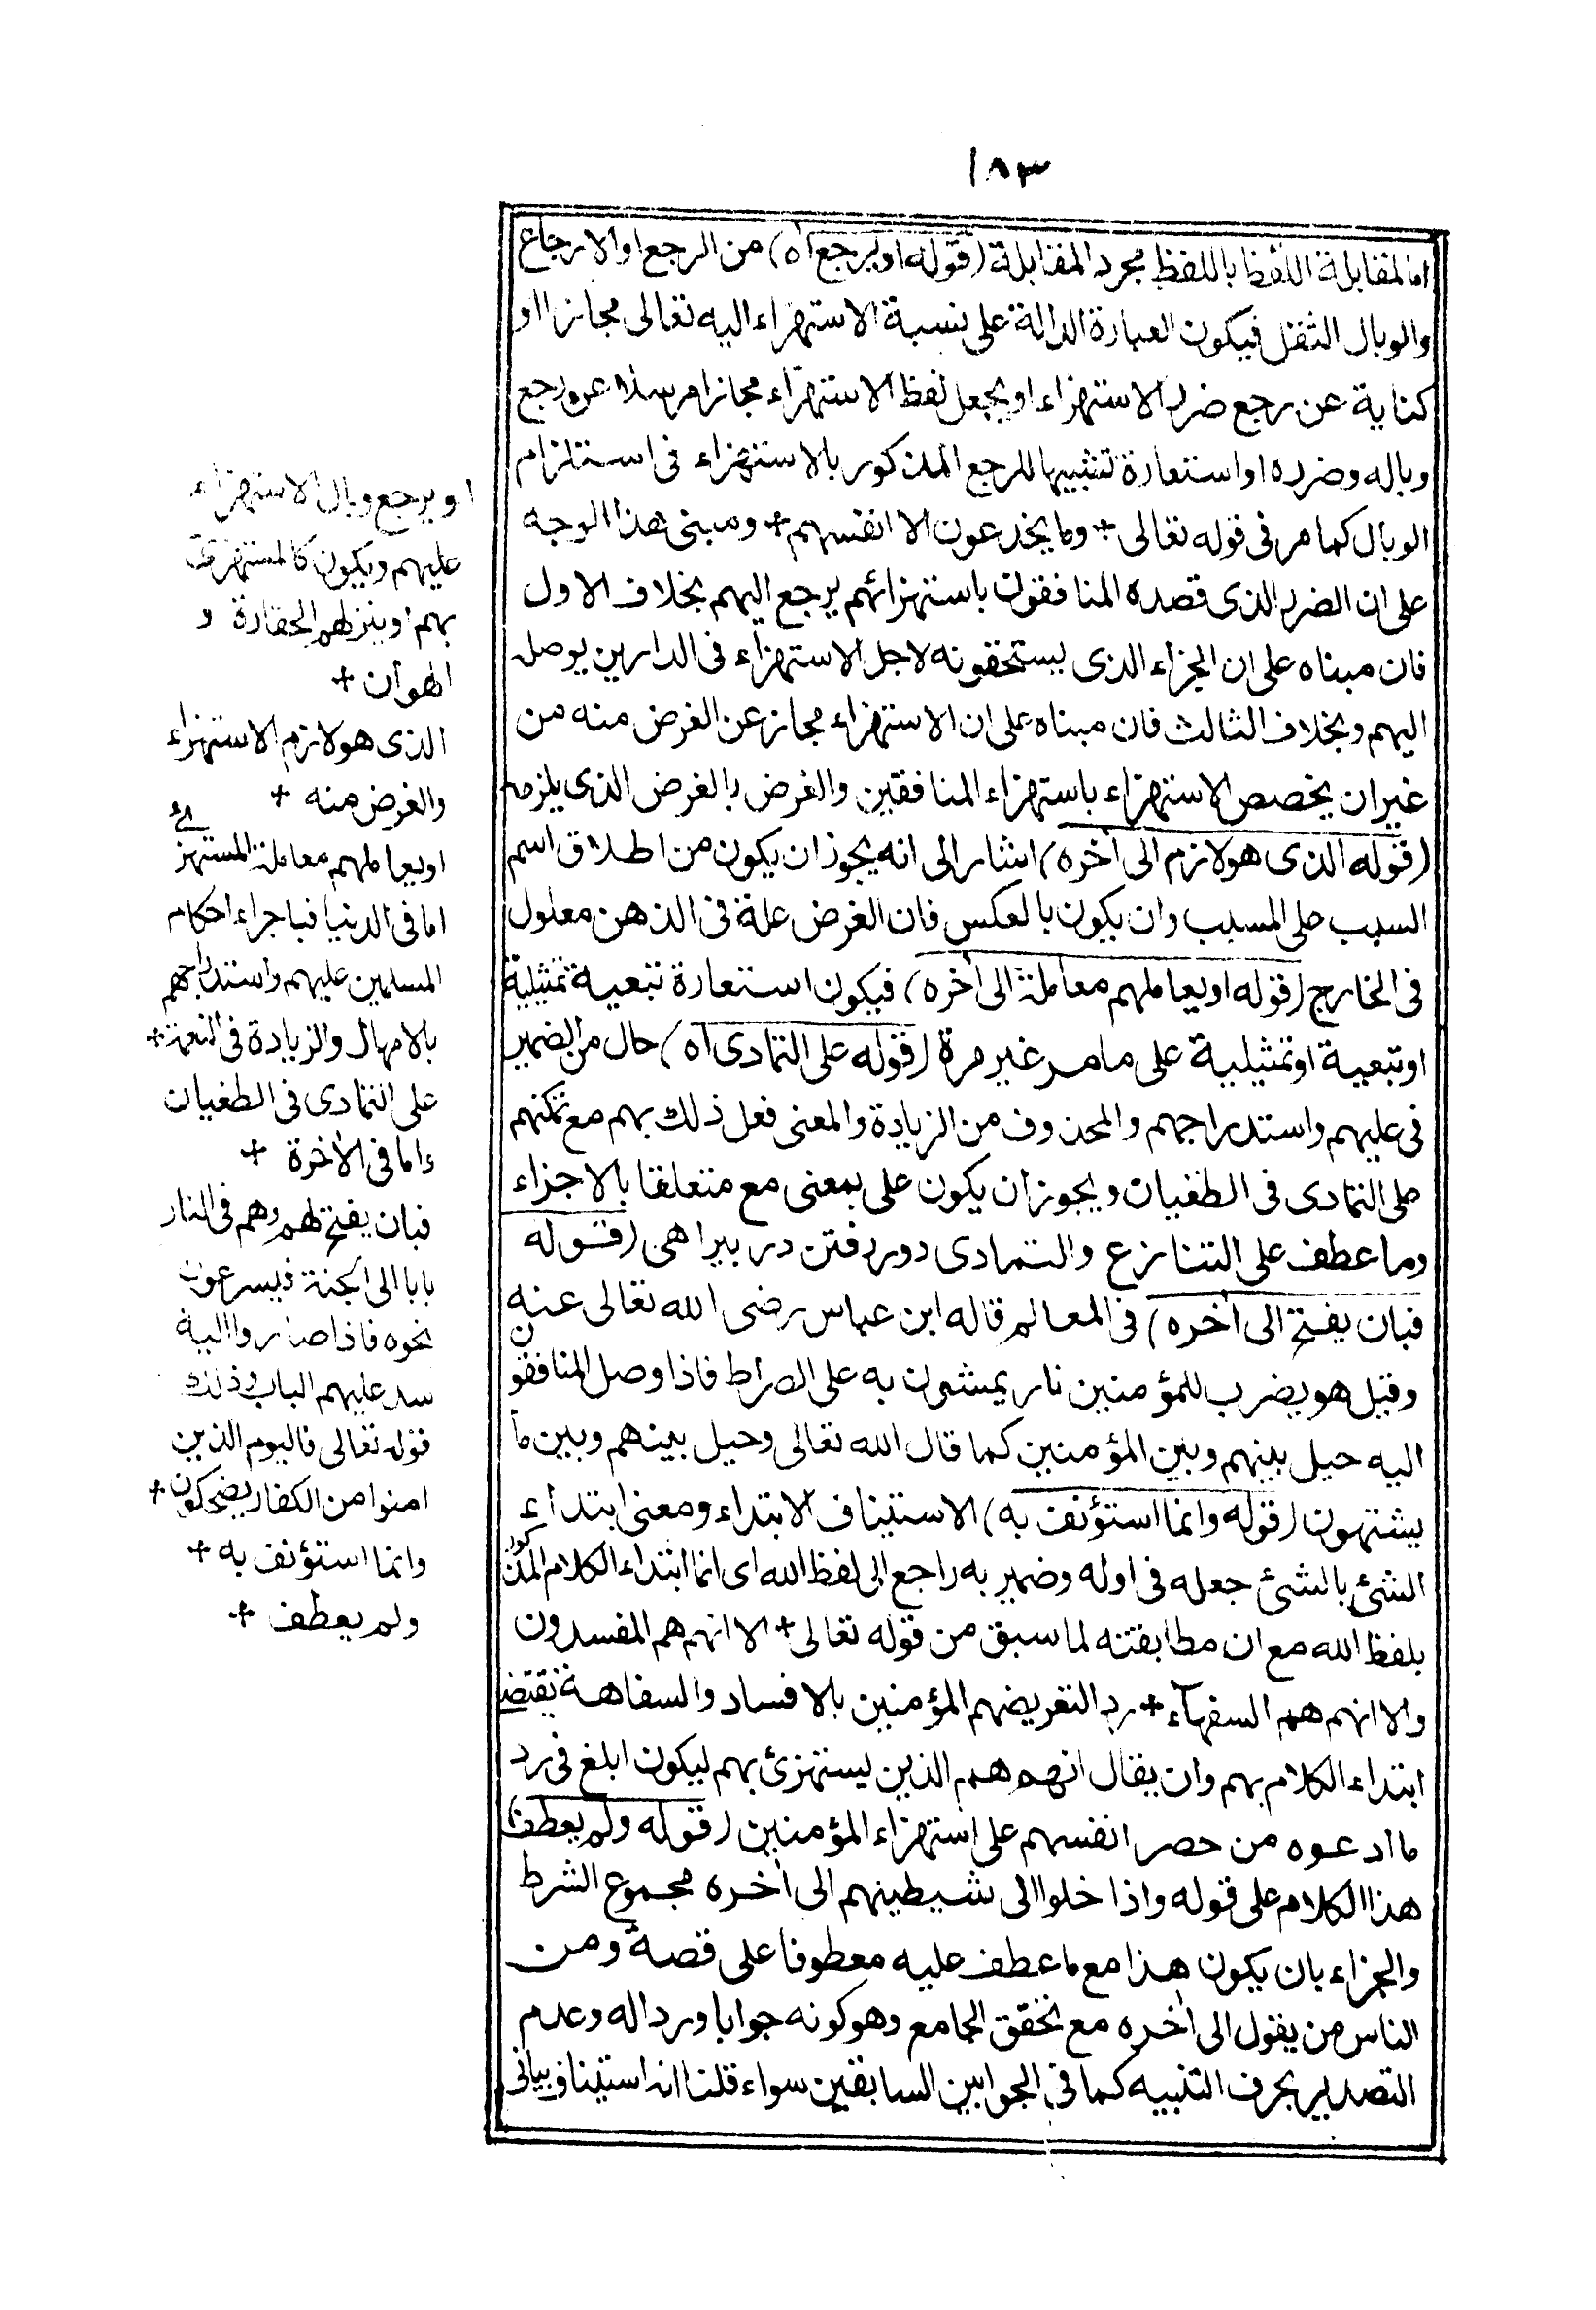 ١٨٣
اما لمقابلة اللفظ باللفظ مجرد المقابلة (قوله او يرجع اه) من الرجع او الارجاع
والوبال الثقل فيكون العبارة الدالة على نسبة الاستهزاء اليه تعالى مجازا او
كناية عن رجع ضرر الاستهزاء او يجعل لفظ الاستهزاء مجازا مرسلا عن رجع
وباله وضرره او استعارة تشبيها للرجع المذكور بالاستهزاء فى استلزام
الوبال كما مر فى قوله تعالى + وما يخدعون الا انفسهم + ومبنى هذا الوجه
على ان الضرر الذى قصده المنافقون باستهزائهم يرجع اليهم بخلاف الاول
فان مبناه على ان الجزاء الذى يستحقونه لاجل الاستهزاء فى الدارين يوصل
اليهم وبخلاف الثالث فان مبناه على ان الاستهزاء مجاز عن الغرض منه من
غير ان يخصص الاستهزاء باستهزاء المنافقين والغرض بالغرض الذى يلزمه
(قوله الذى هو لازم الى أخره) اشار الى انه يجوز ان يكون من اطلاق اسم
السبب على المسبب وان يكون بالعكس فان الغرض علة فى الذهن معلول
فى الخارج (قوله او يعاملهم معاملة الى أخره) فيكون استعارة تبعية تمثيلية
او تبعية او تمثيلية على ما مر غير مرة (قوله على التمادى اه) حال من الضمير
فى عليهم واستدراجهم والمحذوف من الزيادة والمعنى فعل ذلك بهم مع تمكنهم
على التمادى فى الطغيان ويجوز ان يكون على بمعنى مع متعلقا بالاجزاء
وما عطف على التنازع والتمادى دور رفتن در بيراهى (قوله
فبان يفتح الى أخره) فى المعالم قاله ابن عباس رضى الله تعالى عنه
وقيل هو يضرب للمؤمنين نار يمشون به على الصراط فاذا وصل المنافقون
اليه حيل بينهم وبين المؤمنين كما قال الله تعالى وحيل بينهم وبين ما
يشتهون (قوله وانما استؤنف به) الاستيناف الابتداء ومعنى ابتداء
الشئ بالشئ جعله فى اوله وضمير به راجع الى لفظ الله اى انما ابتداء الكلام المذكور
بلفظ الله مع ان مطابقته لما سبق من قوله تعالى + الا انهم هم المفسدون
والا انهم هم السفهآء + رد التعريضهم المؤمنين بالافساد والسفاهة تقتضى
ابتداء الكلام بهم وان يقال انهم هم الذين يستهزئ بهم ليكون ابلغ فى رد
ما ادعوه من حصر انفسهم على استهزاء المؤمنين (قوله ولم يعطف)
هذا الكلام على قوله واذا خلوا الى شيطينهم الى أخره مجموع الشرط
والجزاء بان يكون هذا مع ما عطف عليه معطوفا على قصة ومن
الناس من يقول الى أخره مع تحقق الجامع وهو كونه جوابا وردا له وعدم
التصدير بحرف التنبيه كما فى الجوابين السابقين سواء قلنا انه استيناف بيانى
او يرجع وبال الاستهزاء
عليهم ويكون كالمستهزئ
بهم او ينزل لهم الحقارة و
الهوان +
الذى هو لازم الاستهزاء
والغرض منه +
او يعاملهم معاملة المستهزئ
اما فى الدنيا فباجراء احكام
المسلمين عليهم واستدراجهم
بالامهال والزيادة فى النعمة +
على التمادى فى الطغيان
واما فى الاخرة +
فبان يفتح لهم وهم فى النار
بابا الى الجنة فيسرعون
نحوه فاذا صاروا اليه
سد عليهم الباب وذلك
قوله تعالى فاليوم الذين
امنوا من الكفار يضحكون +
وانما استؤنف به +
ولم يعطف +